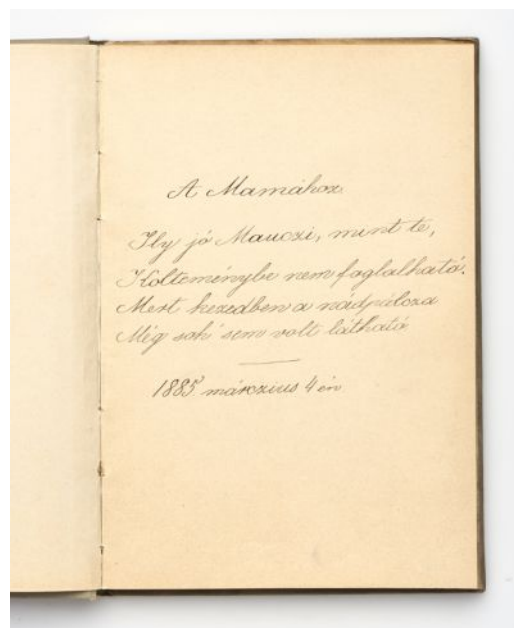 A Mamához
Ily jó Mauczi, mint te,
Költeménybe nem foglalható.
Mert kezedben a nádpálcza
Még soh' sem volt látható
1885 márczius 4 én